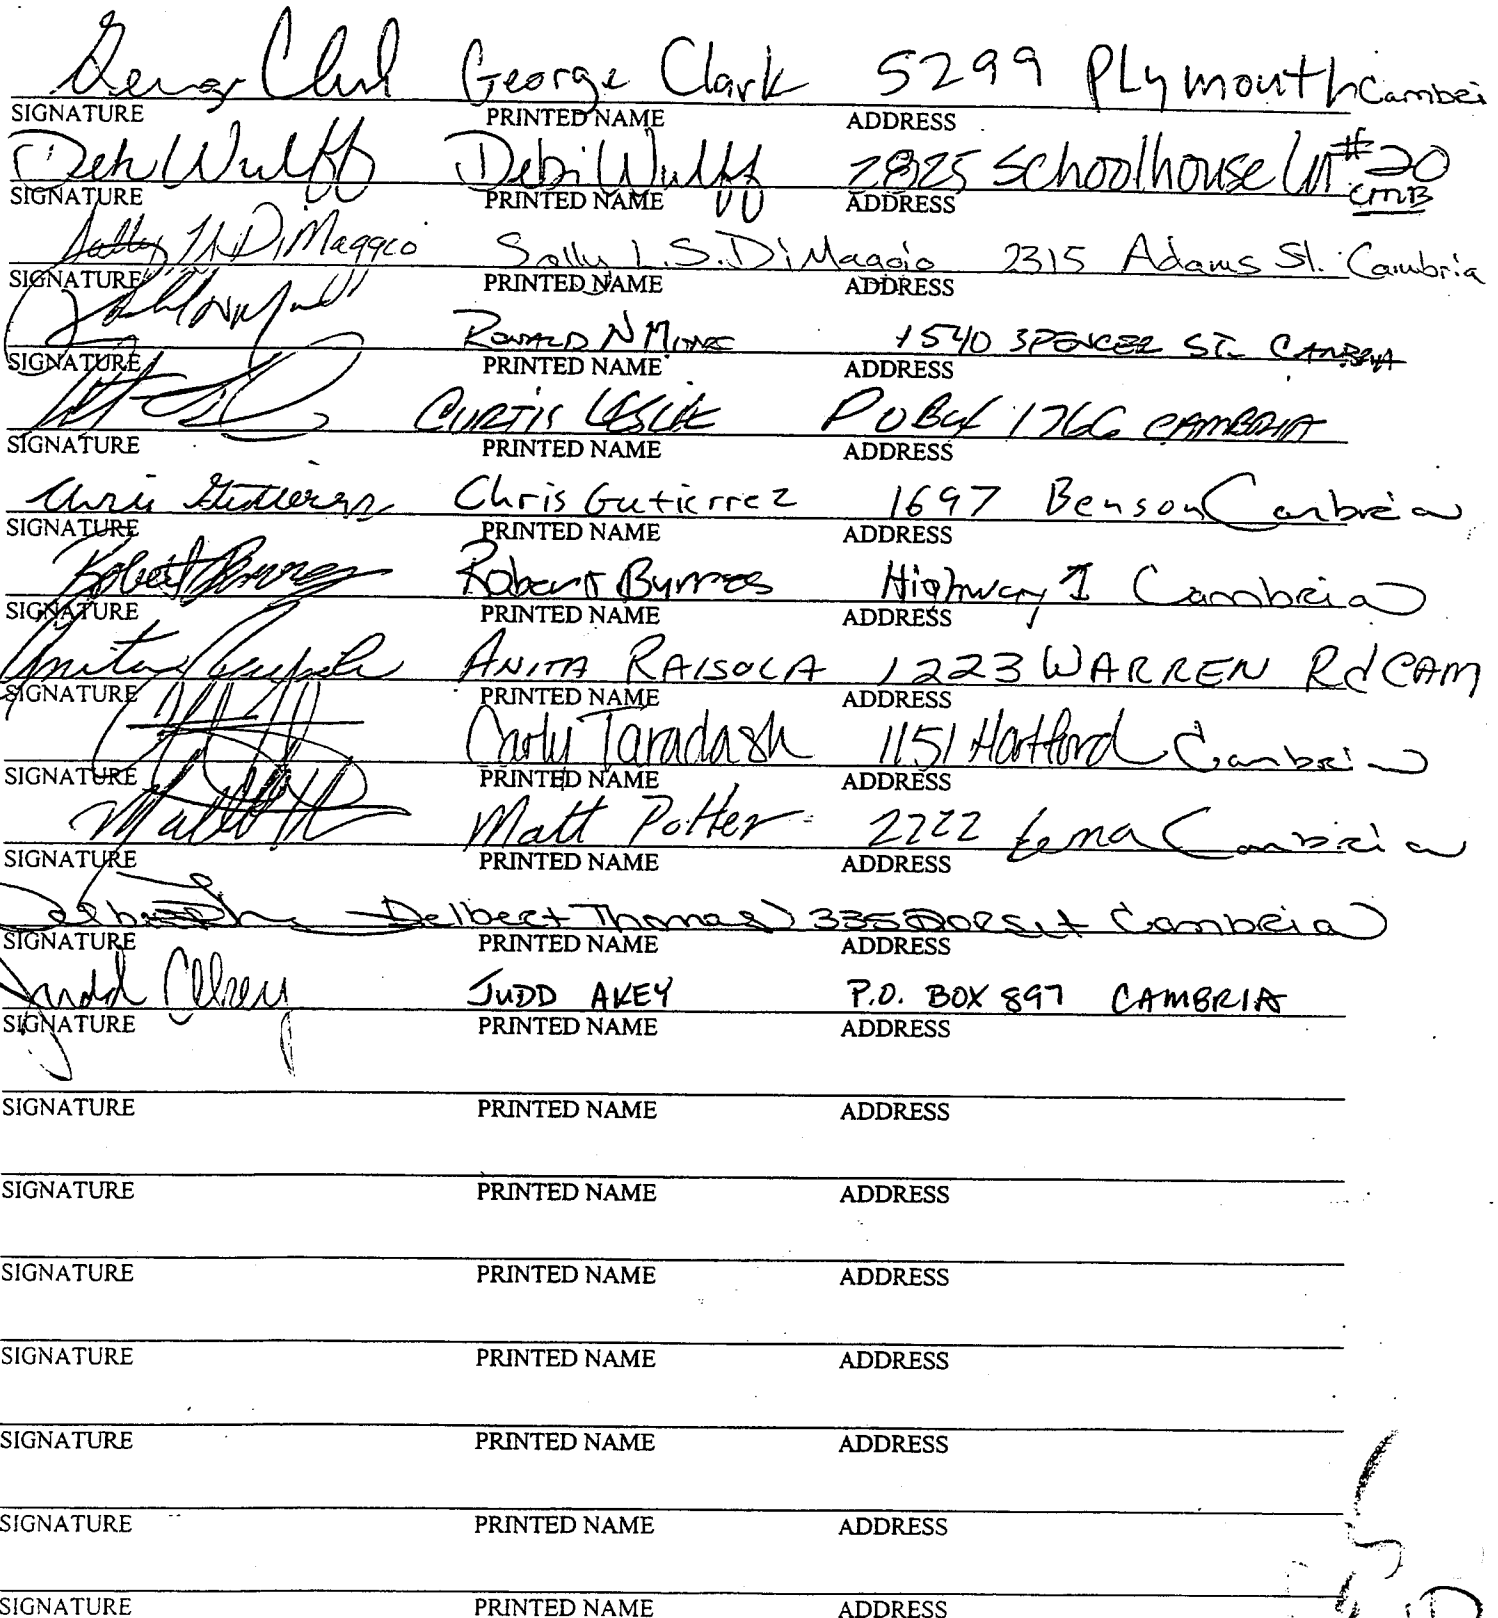 George Clark George Clark 5299 Plymouth Cambri
SIGNATURE PRINTED NAME ADDRESS
Deb Wulff Debi Wulff 2825 Schoolhouse Ln #20
CMB
SIGNATURE PRINTED NAME ADDRESS
Sally DiMaggio Sally L.S. DiMaggio 2315 Adams St. Cambria
SIGNATURE PRINTED NAME ADDRESS
RONALD N 1540 SPENCER ST. CAMBRIA
SIGNATURE PRINTED NAME ADDRESS
CURTIS LESLIE PO Box 1766 CAMBRIA
SIGNATURE PRINTED NAME ADDRESS
Chris Gutierrez Chris Gutierrez 1697 Benson Cambria
SIGNATURE PRINTED NAME ADDRESS
Robert Robert Byrnes Highway 1 Cambria
SIGNATURE PRINTED NAME ADDRESS
Anita ANITA RAISOLA 1223 WARREN Rd CAM
SIGNATURE PRINTED NAME ADDRESS
Carly Taradash 1151 Hartford Cambria
SIGNATURE PRINTED NAME ADDRESS
Matt Potter 2222 Cambria
SIGNATURE PRINTED NAME ADDRESS
Delbert Thomas 335 Dorset Cambria
SIGNATURE PRINTED NAME ADDRESS
Judd Akey JUDD AKEY P.O. BOX 897 CAMBRIA
SIGNATURE PRINTED NAME ADDRESS
SIGNATURE PRINTED NAME ADDRESS
SIGNATURE PRINTED NAME ADDRESS
SIGNATURE PRINTED NAME ADDRESS
SIGNATURE PRINTED NAME ADDRESS
SIGNATURE PRINTED NAME ADDRESS
SIGNATURE PRINTED NAME ADDRESS
SIGNATURE PRINTED NAME ADDRESS